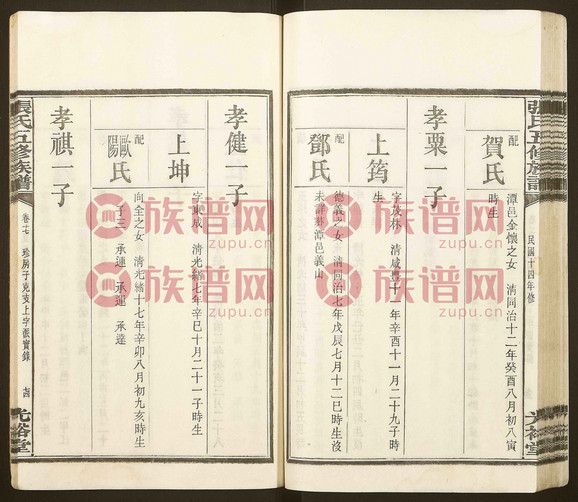 張氏五修族譜
民國十四年修
光裕堂
配
賀氏
潭邑金懷之女 清同治十二年癸酉八月初八寅
時生
孝粟一子
上筠
字茂林 清咸豐十一年辛酉十一月二十九子時
生
配
鄧氏
德義之女 清同治七年戊辰七月十二巳時生沒
未詳葬潭邑義山
孝健一子
上坤
字東成 清光緒七年辛巳十月二十一子時生
配
歐陽氏
向全之女 清光緒十七年辛卯八月初九亥時生
子三 承連 承運 承達
孝祺一子
張氏五修族譜
卷十七 珍房子克支上字派實錄
光裕堂
族谱网
zupu.cn
族谱网
zupu.cn
族谱网
zupu.cn
族谱网
zupu.cn